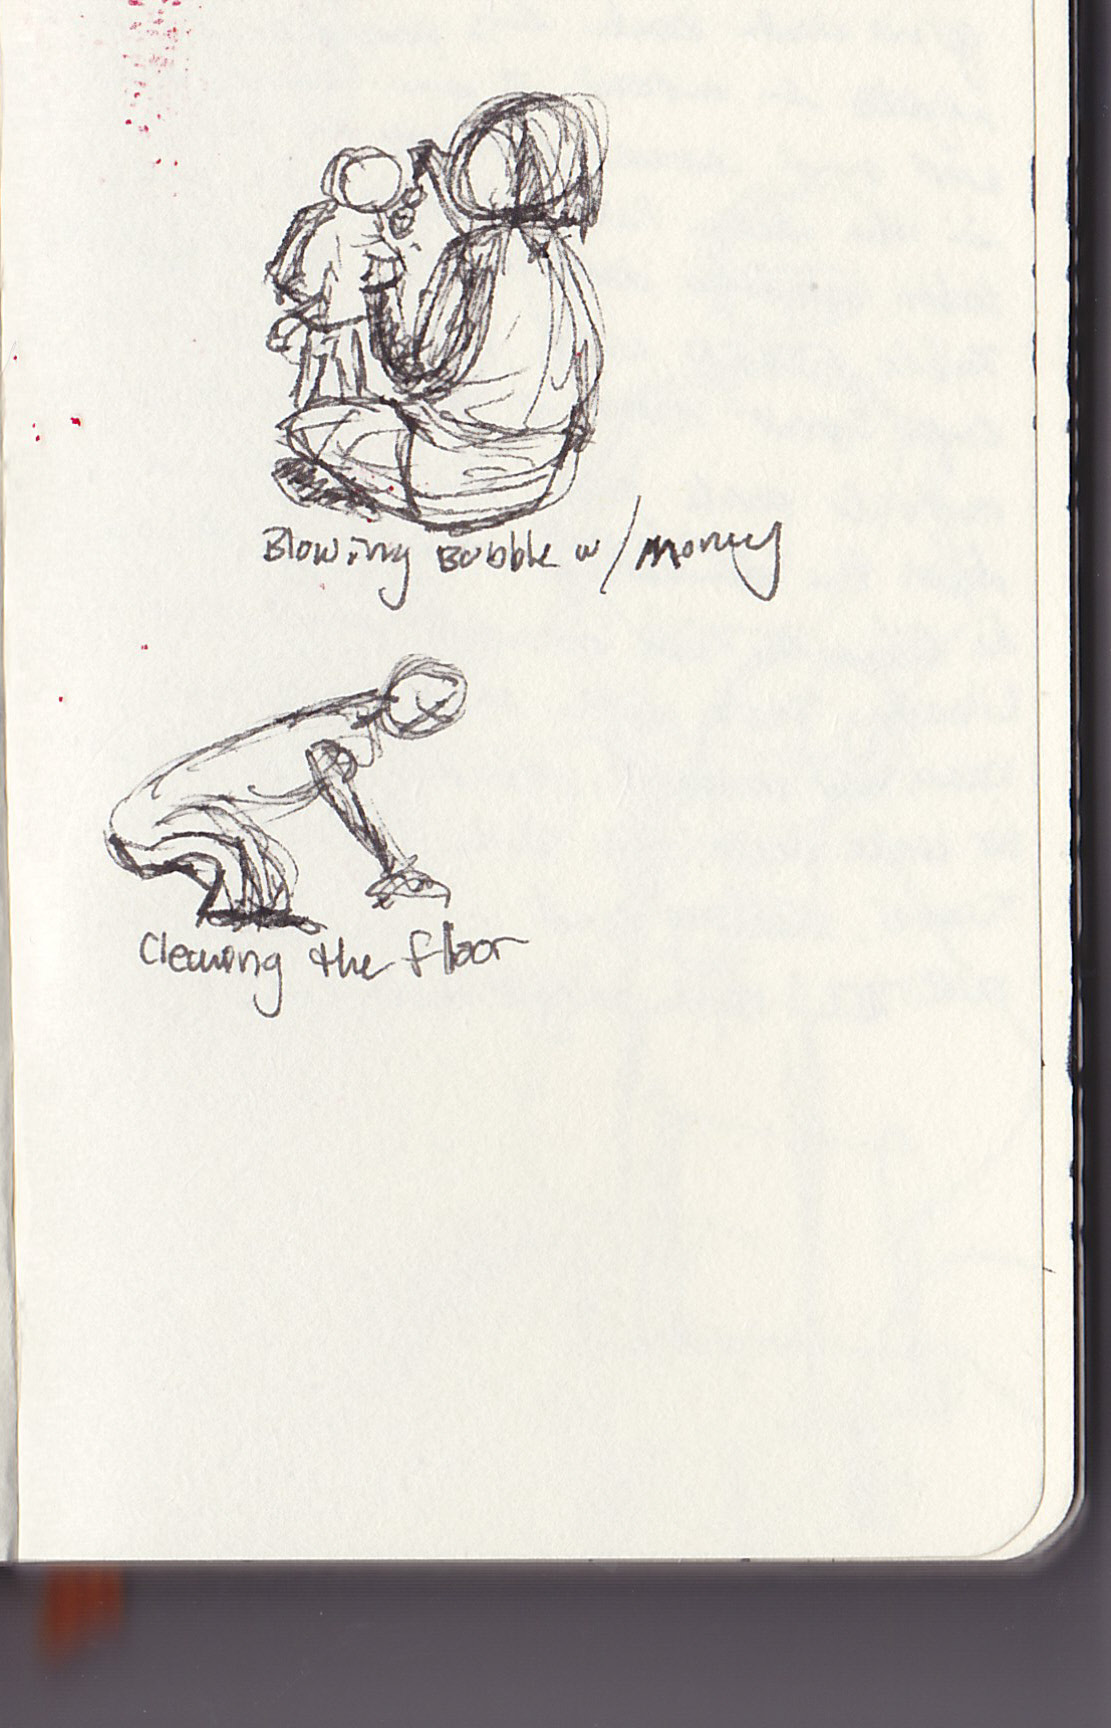 Blowing Bubble w/ Mommy
Cleaning the floor